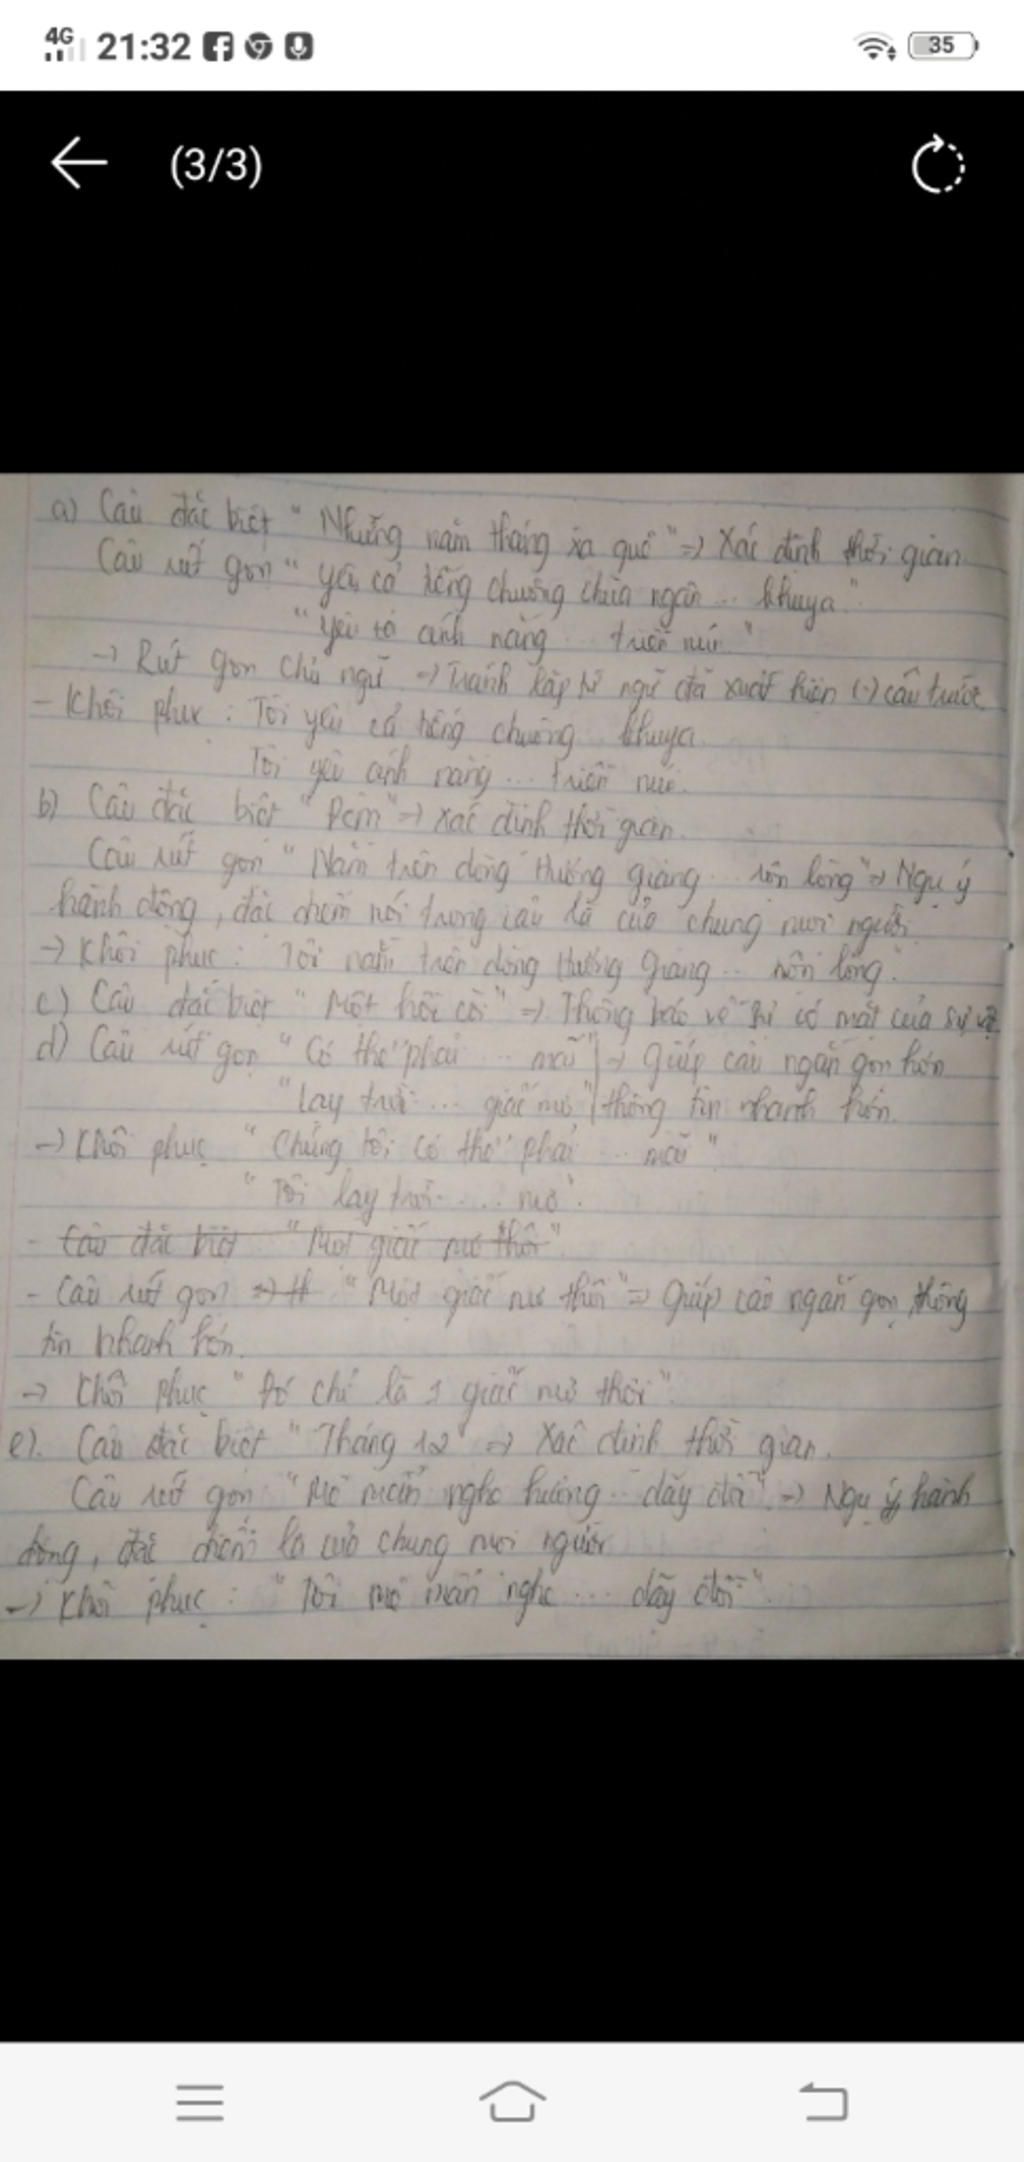 4G 21:32 35
(3/3)
a) Câu đặc biệt "Những năm tháng xa quê" => Xác định thời gian
Câu rút gọn "yêu cả tiếng chuông chùa ngân... khuya"
"yêu tả ánh nắng ... triền núi"
-> Rút gọn chủ ngữ -> Tránh lặp từ ngữ đã xuất hiện (-) câu trước
- Khôi phục: Tôi yêu cả tiếng chuông khuya
Tôi yêu ánh nắng ... triền núi.
b) Câu đặc biệt "Đêm" -> Xác định thời gian.
Câu rút gọn "Nằm trên dòng Hương giang ... lòng" => Ngụ ý
hành động, đặc điểm nói trong câu là của chung mọi người
-> Khôi phục: Tôi nằm trên dòng Hương Giang ... lòng.
c) Câu đặc biệt "Một hồi còi" => Thông báo về sự có mặt của sự vật
d) Câu rút gọn "Có thể phải ... mãi" -> Giúp câu ngắn gọn hơn
"lay trời ... giấc mơ" thông tin nhanh hơn.
-> Khôi phục "Chúng tôi có thể phải ... mãi"
"Tôi lay trời ... mơ".
- Câu đặc biệt "Một giấc mơ thôi"
- Câu rút gọn "Một giấc mơ thôi" => Giúp câu ngắn gọn, thông
tin nhanh hơn.
-> Khôi phục "Đó chỉ là 1 giấc mơ thôi".
e). Câu đặc biệt "Tháng 12" => Xác định thời gian.
Câu rút gọn "Mê mẩn nghe hương ... dậy" -> Ngụ ý hành
động, đặc điểm là của chung mọi người
-> Khôi phục: "Tôi mê mẩn nghe ... dậy".